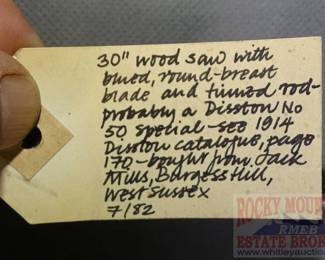 30" wood saw with
blued, round-breast
blade and tinned rod-
probably a Disston No
50 special - see 1914
Disston catalogue, page
170 - bought from Jack
Mills, Burgess Hill,
West Sussex
7/82
ROCKY MOUN
RMEB
ESTATE BROK
www.whitleyauction